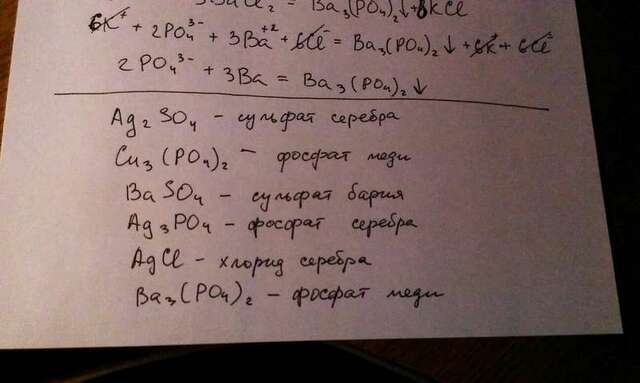 3BaCl₂ = Ba₃(PO₄)₂↓+6KCl
6K⁺ + 2PO₄³⁻ + 3Ba⁺² + 6Cl⁻ = Ba₃(PO₄)₂↓ + 6K + 6Cl⁻
2PO₄³⁻ + 3Ba = Ba₃(PO₄)₂↓
Ag₂SO₄ - сульфат серебра
Cu₃(PO₄)₂ - фосфат меди
BaSO₄ - сульфат бария
Ag₃PO₄ - фосфат серебра
AgCl - хлорид серебра
Ba₃(PO₄)₂ - фосфат меди